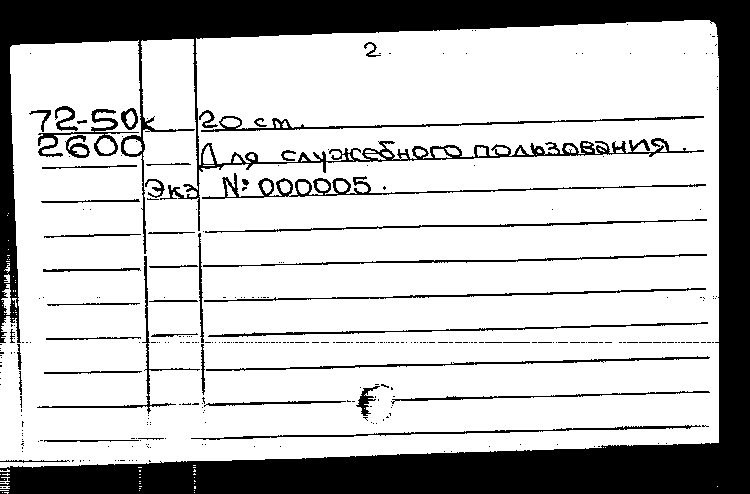 2
72-50к 20 cm.
2600 Для служебного пользования.
Экз №000005.